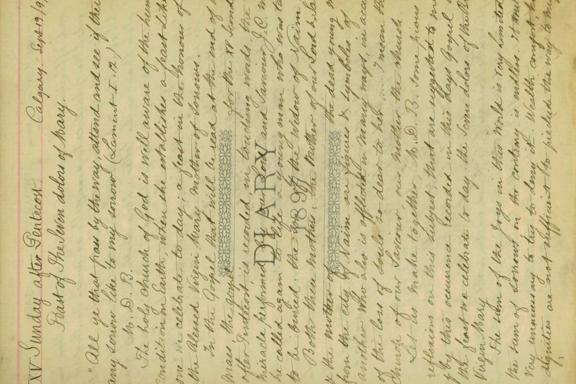 XV Sunday after Pentecost. Calgary. Sept 19/9
Feast of The Seven dolors of Mary.
"All ye that pass by the way attend and see if the
any sorrow like to my sorrow (Lament. I. 12)
M. D. B.
The holy church of God is well aware of the hum
condition on Earth, when she establishes a feast like
one we celebrate to day, a feast in the honour of
the Blessed Virgin Mary, mother of Sorrows.
In the Gospel that will be read at the end of
mass, the gospel for the XV Sunda
after Pentecost is recorded in touching words the
miracle performed by our Lord and Saviour J.C. w
he called again to life the young man who was to
to be buried: the son of the widow of Naim.
Both these mothers, the Mother of our Lord & Sa
& the mother of the dead young m
from the city of Naim are figures & symbols of
another who also is afflicted in many ways on acc
of the loss of souls so dear to her. I mean the
Church of our Saviour our mother the church
Let us make together M. D. B. some pious
reflexions on this subject that are suggested to us
by this occurrence recorded in this days Gospel &
the feast we celebrate to day the Seven dolors of the B
Virgin Mary
The sum of the joys in this world is very limited
the sum of sorrows on the contrary is
very unnecessary to try to deny it. Wealth might
dignities are not sufficient to preclude the way to the
DIARY
189